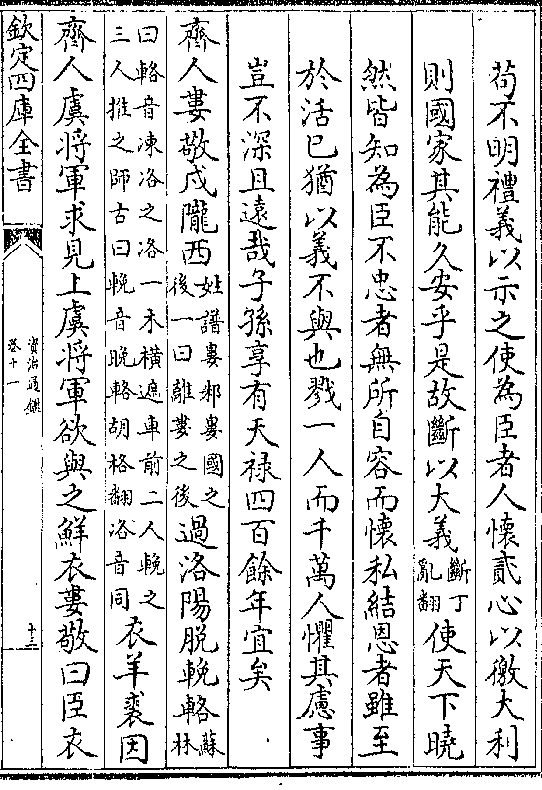 苟不明禮義以示之使為臣者人懷貳心以徼大利
則國家其能久安乎是故斷以大義斷丁亂翻使天下曉
然皆知為臣不忠者無所自容而懷私結恩者雖至
於活已猶以義不與也戮一人而千萬人懼其慮事
豈不深且遠哉子孫享有天禄四百餘年宜矣
齊人婁敬戍隴西姓譜婁邾婁國之後一曰離婁之後過洛陽脱輓輅蘇林
曰輅音凍洛之洛一木横遮車前二人輓之三人推之師古曰輓音晚輅胡格翻洛音同衣羊裘因
齊人虞將軍求見上虞將軍欲與之鮮衣婁敬曰臣衣
欽定四庫全書
資治通鑑
卷十一
十三